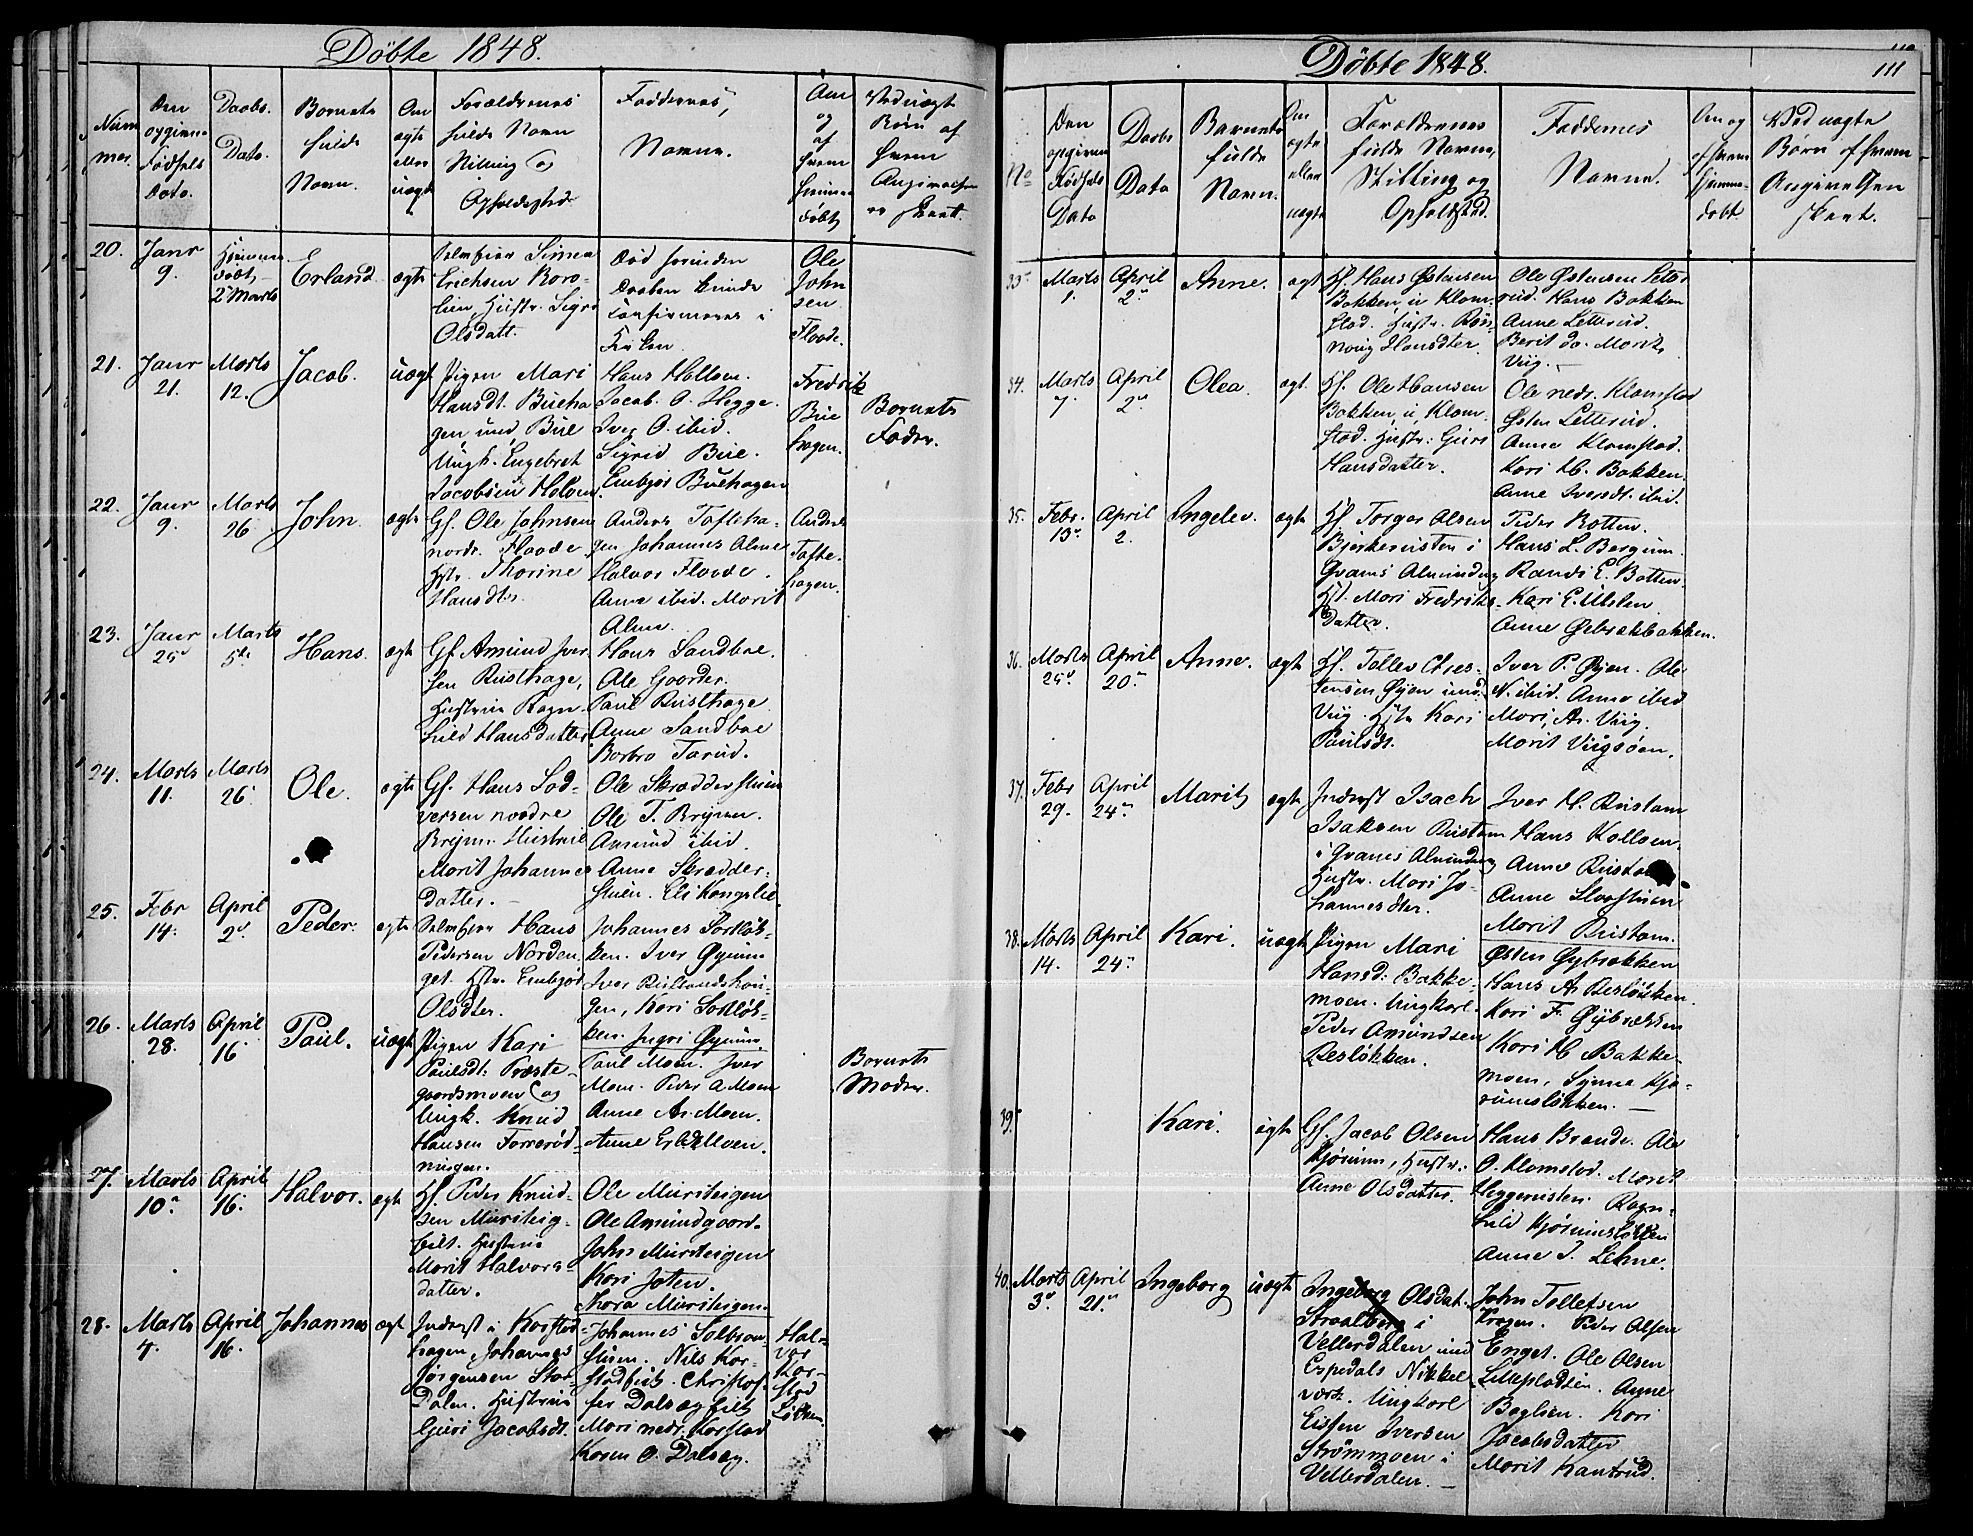 Döbte 1848.
Num
mer.
Den
opgivne
Fødsels
Dato.
Daabs.
Dato.
Barnets
fulde
Navn.
Om
ægte
eller
uægte
Forældrenes
fulde Navn
Stilling og
Opholdssted
Faddernes,
Navne.
Om
og
af
hvem
hjemme
døbt
Ved uægte
Børn af
hvem
Angivelsen
er skeet.
20.
Janr
9.
Hjemme
døbt,
2 Marts
Erland.
ægte
Simen
Erichsen Boro-
lien, Hustr. Sigri
Olsdatt.
Ole
John
sen
Floode.
21.
Janr
21.
Marts
12.
Jacob.
uægt
Pigen Mari
Hansdt. Bueha
gen und. Bue
Ungk. Engebret
Jacobsen Holoen
Hans Holloen.
Jacob. O. Hegge.
Iver O. ibid.
Sigrid Bue.
Embjør Buehagen
Fredrik
Bue
hagen.
Barnets
Fader.
22.
Janr
9.
Marts
26.
John.
ægte
Gf. Ole Johnsen
nordr. Floode
Hstr. Thorine
Hansdtr.
Anders Tofteha-
gen Johannes Alme
Halvor Floode.
Anne ibid. Marit
Alme.
Anders
Tofte-
hagen.
23.
Janr
25
Marts
5te
Hans.
ægte
Gf. Amund Iver
sen Rusthage,
Hustrue Ragn-
hild Hansdatter
Hans Sandboe.
Ole Goorder.
Paul Rusthage
Anne Sandboe
Barbro Torud.
24.
Marts
11.
Marts
26.
Ole.
ægte
Gf. Hans Lod-
versen nordre
Brynn. Hustrue
Morit Johannes
datter.
Ole Skrædderstuen
Ole T. Brynn.
Amund ibid.
Anne Skrædder-
stuen. Eli Kongslie
25.
Febr
14.
April
2
Peder.
ægte
Hans
Pedersen Norden
get. Hstr. Embjør
Olsdter.
Johannes Sorkløk-
ken. Iver
gen, Kari Sorkløk-
ken
26.
Marts
28.
April
16
Paul.
uægt
Pigen Kari
Paulsdt. Præste-
goordsmoen og
Ungk. Knud
Hansen Torrerød-
ningen.
Paul Moen. Iver
Moen. Peder A Moen
Anne As. Moen.
Barnets
Moder.
27.
Marts
10.
April
16.
Halvor.
ægte
Hf. Peder Knud-
sen Mursteig-
eiet. Hustrue
Marit Halvors-
datter.
Ole Mursteigen
Ole Amundgoord.
John Mursteigen
Kari Joten.
Thora Mursteigen.
28.
Marts
4.
April
16.
Johannes
ægt
Inderst i Korstad-
hagen, Johannes
Jørgensen Stor-
Dalen. Hustrue
Guri Jacobsdt.
Johannes Solbrau-
stuen. Nils Kor-
stadeiet. Christof-
fer Dalsegeiet
Mari nedr. Korstad
Karen O. Dalseg.
Hal-
vor
Kor-
stad
Løkken.
Döbte 1848.
111
No
Den
opgivne
Fødsels
Dato
Daabs
Dato
Barnets
fulde
Navn.
Om
ægte
eller
uægte
Forældrenes
fulde Navne,
Stilling og
Opholdsted.
Faddernes
Navne.
Om og
af hvem
hjemme-
døbt
Ved uægte
Børn af hvem
Angivelsen
skeet.
33
Marts
1.
April
2
Anne.
ægt
Hf. Hans Østensen
Bakken, u Klom-
stad. Hustr. Røn-
noug Hansdter
Ole Østensen Lette
rud. Hans Bakken
Anne Letterud.
Berit do. Marit
Viig.
34.
Marts
7.
April
2
Olea
ægt.
Hf. Ole Hansen
Bakken, u Klom-
stad. Hustr: Guri
Hansdatter.
Ole nedr. Klomstad
Østen Letterud.
Anne Klomstad.
Kari H. Bakken.
Anne Iversdt. ibid.
35.
Febr.
13
April
2.
Ingelev.
ægte
Hf. Torger Olsen
Bjerkerusten i
Qvams Alminding
Hst. Mari Fredriks-
datter.
Peder Botten.
Hans L. Bergum.
Randi E. Botten.
Kari E. Ulslen
Anne Ørbækbakken.
36.
Marts
25
April
20
Anne.
ægte
Hf. Tollev Chres-
tensen Øyen und.
Viig. Hstr Kari
Paulsdt.
Iver P. Øyen. Ole
N. ibid. Anne ibid
Mari As. Viig.
Marit Viigsøen.
37.
Febr
29.
April
24
Marit
ægte
Inderst Isach
Isaksen Rustam
i Qvams Alminding
Hustr. Mari Jo-
hannesdter.
Iver H. Rustam
Hans Kolloen.
Anne Rustam
Anne
Marit Rustam.
38.
Marts
14.
April
24
Kari.
uægt
Pigen Mari
Hansd: Bakke-
moen. Ungkarl.
Peder Amundsen
Resløkken.
Østen Gybrækken
Hans A. Resløkken.
Kari F. Gybrækken
Kari H. Bakke-
moen, Synne Kjø-
rumsløkken.
39.
Kari.
ægte
Gf. Jacob Olsen
Kjørum, Hustr.
Anne Olsdatter.
Hans Brande. Ole
O. Klomstad. Marit
Heggerusten. Ragn-
hild Kjørumsløkken
Anne J. Lehne.
40.
Marts
3
April
21
Ingeborg
uægte
Ingeborg Olsdat.
Straalberg i
Vellerdalen und
Espedals Nikkel-
værk. Ungkarl
Eisten Iversen
Strømmoen i
Vellerdalen.
John Tollefsen
Krogen. Peder Olsen
Enget. Ole Olsen
Lilleplodsen. Anne
Baglien. Kari
Jacobsdatter
Marit Kantrud.